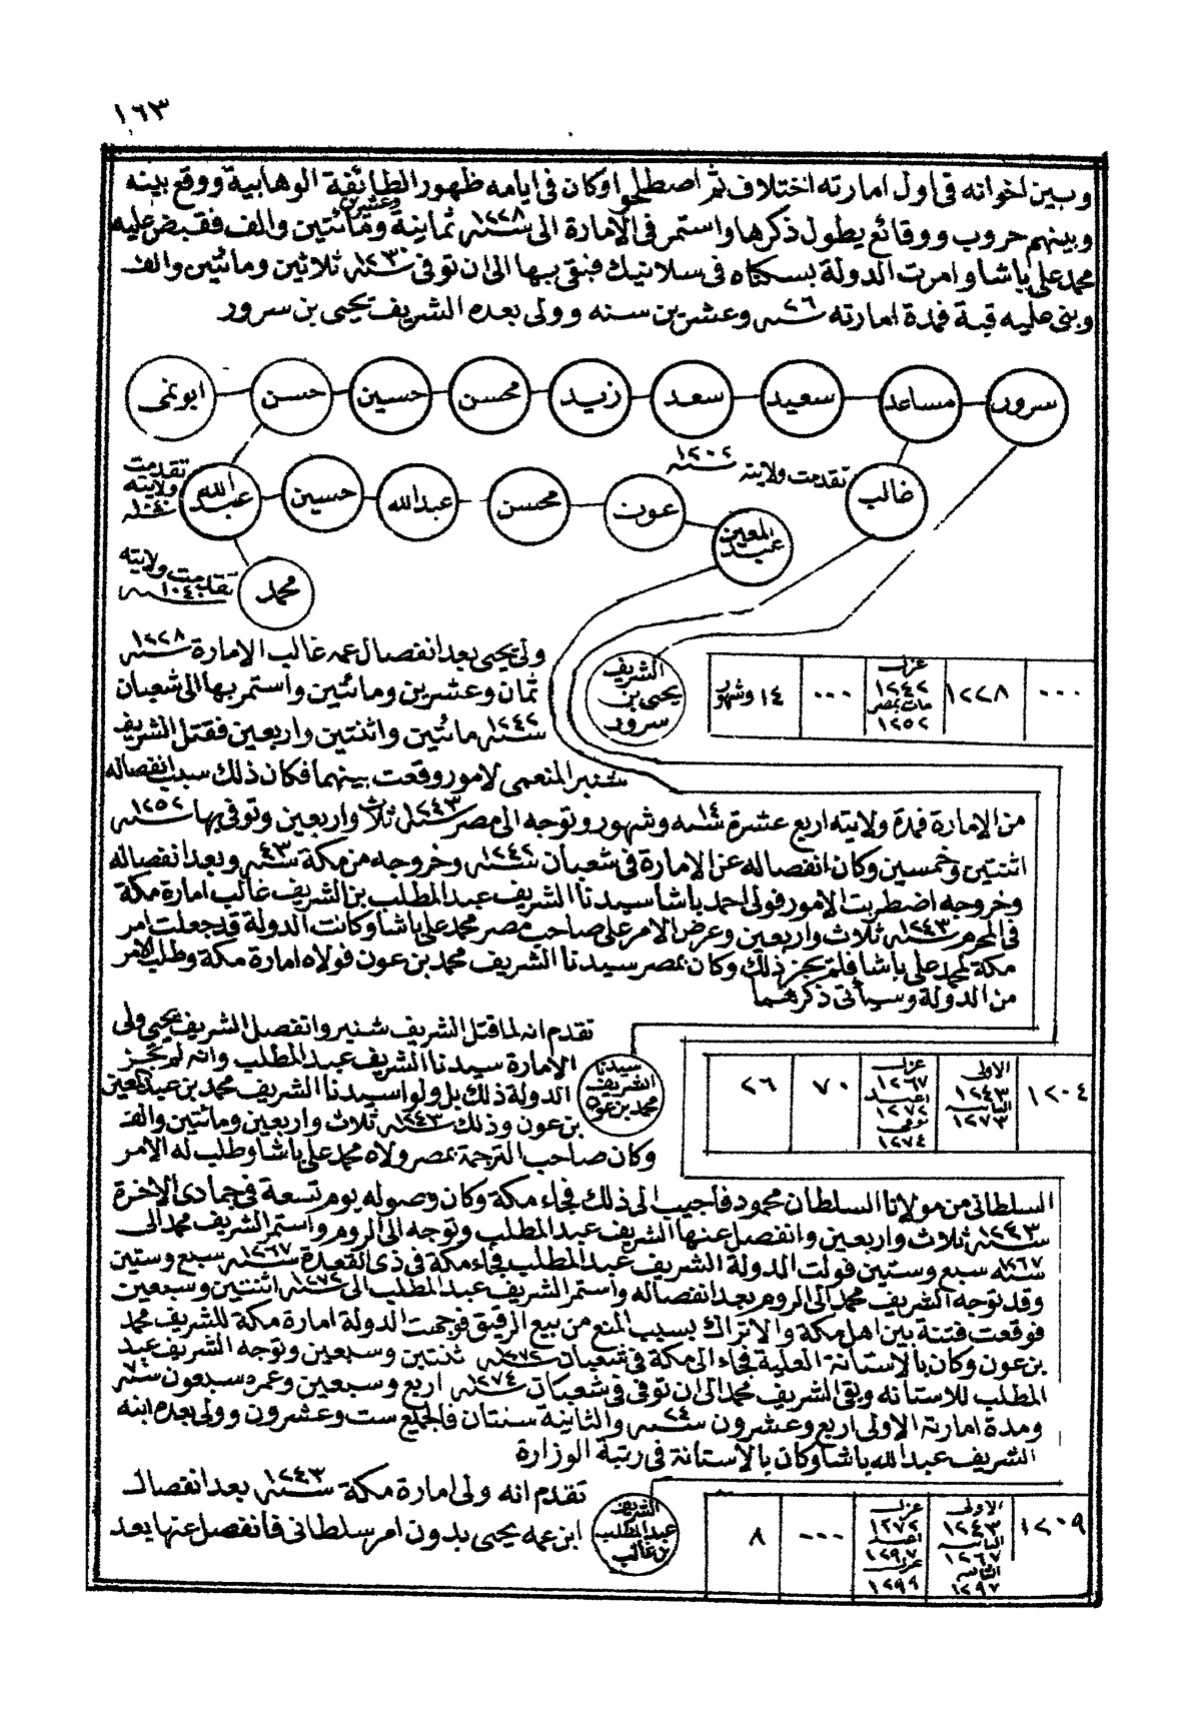 ١٦٣
وبين اخوانه في اول امارته اختلاف ثم اصطلحوا وكان في ايامه ظهور الطائفة الوهابية ووقع بينه
وبينهم حروب ووقائع يطول ذكرها واستمر في الامارة الى سنة ١٢٢٨ ثمانية وعشرين ومائتين والف فقبض عليه
محمد علي باشا وامرت الدولة بسكناه في سلانيك فبقي بها الى ان توفي سنة ١٢٣٠ ثلاثين ومائتين والف
وبنى عليه قبة فمدة امارته ٢٦ سنه وعشرين سنه وولى بعده الشريف يحيى بن سرور
سرور مساعد سعيد سعد زيد محسن حسين حسن ابونمى
غالب تقدمت ولايته سنة ١٢٠٢
عبد المعين عون محسن عبدالله حسين عبد الله تقدمت ولايته سنة ١٠٤٠
محمد تقدمت ولايته سنة ١٠٤٠
٠٠٠ ١٢٢٨ عزل ١٢٤٢ مات بمصر ١٢٥٢ ٠٠٠ ١٤ وشهور
الشريف يحيى بن سرور
ولى يحيى بعد انفصال عمه غالب الامارة سنة ١٢٢٨
ثمان وعشرين ومائتين واستمر بها الى شعبان
سنة ١٢٤٢ مائتين واثنتين واربعين فقتل الشريف
شنبر المنعمى لامور وقعت بينهما فكان ذلك سبب انفصاله
من الامارة فمدة ولايته اربع عشرة ١٤ سنه وشهور وتوجه الى مصر سنة ١٢٤٣ ثلاث واربعين وتوفي بها سنة ١٢٥٢
اثنتين وخمسين وكان انفصاله عن الامارة في شعبان سنة ١٢٤٢ وخروجه من مكة سنة ٤٣ وبعد انفصاله
وخروجه اضطربت الامور فولى احمد باشا سيدنا الشريف عبد المطلب بن الشريف غالب امارة مكة
في المحرم سنة ١٢٤٣ ثلاث واربعين وعرض الامر على صاحب مصر محمد علي باشا وكانت الدولة قد جعلت امر
مكة لمحمد علي باشا فلم يجز ذلك وكان بمصر سيدنا الشريف محمد بن عون فولاه امارة مكة وطلب الامر
من الدولة وسياتي ذكرهما
١٢٠٤ الاولى ١٢٤٣ الثانيه ١٢٧٣ عزل ١٢٦٧ اعيد ١٢٧٢ توفي ١٢٧٤ ٧٠ ٢٦
سيدنا الشريف محمد بن عون
تقدم انه لما قتل الشريف شنبر وانفصل الشريف يحيى ولى
الامارة سيدنا الشريف عبد المطلب وانه لم تجز
الدولة ذلك بل ولوا سيدنا الشريف محمد بن عبد المعين
بن عون وذلك سنة ١٢٤٣ ثلاث واربعين ومائتين والف
وكان صاحب الترجمة بمصر ولاه محمد علي باشا وطلب له الامر
السلطاني من مولانا السلطان محمود فاجيب الى ذلك فجاء مكة وكان وصوله يوم تسعة في جمادى الاخرة
سنة ١٢٤٣ ثلاث واربعين وانفصل عنها الشريف عبد المطلب وتوجه الى الروم واستمر الشريف محمد الى
سنة ١٢٦٧ سبع وستين فولت الدولة الشريف عبد المطلب فجاء مكة في ذي القعدة سنة ١٢٦٧ سبع وستين
وقد توجه الشريف محمد الى الروم بعد انفصاله واستمر الشريف عبد المطلب الى سنة ١٢٧٢ اثنتين وسبعين
فوقعت فتنة بين اهل مكة والاتراك بسبب المنع من بيع الرقيق فوجهت الدولة امارة مكة للشريف محمد
بن عون وكان بالاستانة العلية فجاء الى مكة في شعبان سنة ١٢٧٢ ثنتين وسبعين وتوجه الشريف عبد
المطلب للاستانه وبقي الشريف محمد الى ان توفي في شعبان سنة ١٢٧٤ اربع وسبعين وعمره سبعون سنة ٧٠
ومدة امارته الاولى اربع وعشرون سنة ٢٤ والثانية سنتان فالجميع ست وعشرون وولى بعده ابنه
الشريف عبد الله باشا وكان بالاستانة في رتبة الوزارة
١٢٠٩ الاولى ١٢٤٣ الثانيه ١٢٦٧ الثالثه ١٢٩٧ عزل ١٢٧٢ اعيد ١٢٩٧ عزل ١٢٩٩ ٠٠٠ ٨
الشريف عبد المطلب بن غالب
تقدم انه ولى امارة مكة سنة ١٢٤٣ بعد انفصال
ابن عمه يحيى بدون امر سلطاني فانفصل عنها بعد